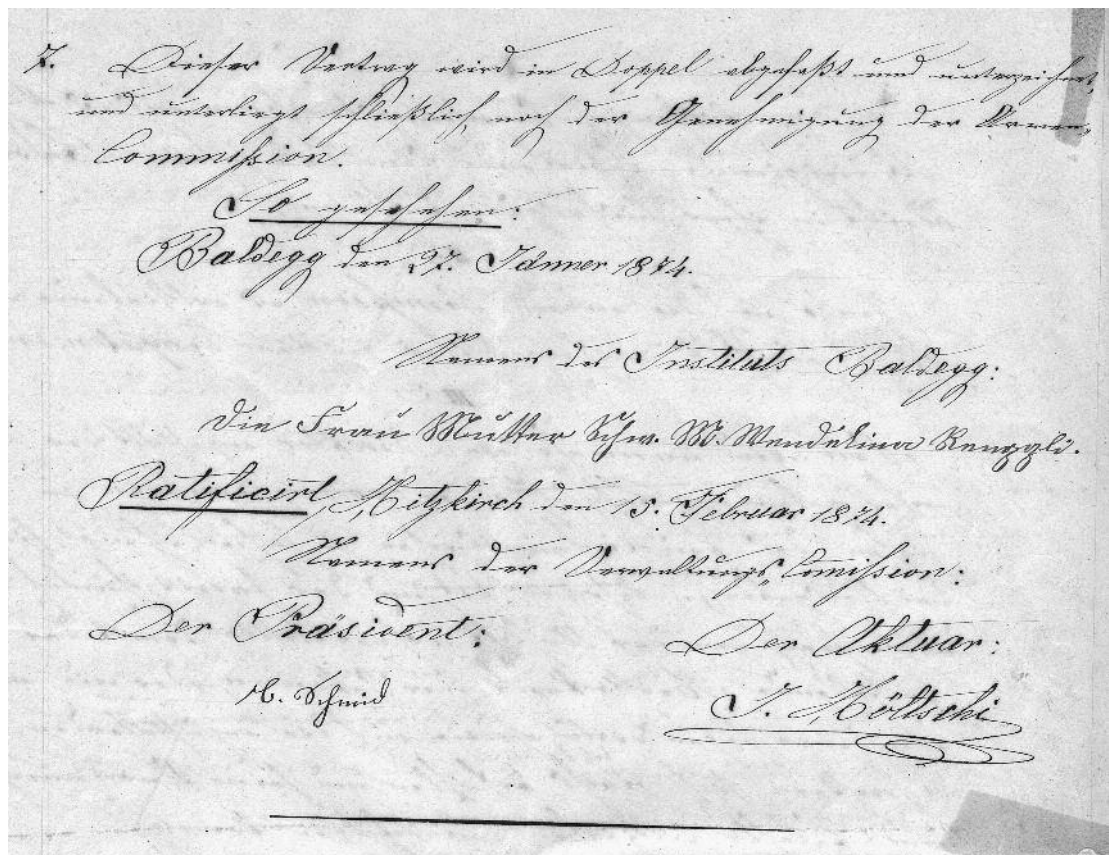 7. Dieser Vertrag wird in Doppel abgefaßt und unterzeichnet,
und unterliegt schließlich noch der Genehmigung der Armen-
Commission.
So geschehen:
Baldegg den 27. Jänner 1874.
Namens des Instituts Baldegg:
Die Frau Mutter Schw. M. Wendelina Renggli.
Ratificirt, Hitzkirch den 15. Februar 1874.
Namens der Verwaltungs-Comission:
Der Präsident:
Der Aktuar:
Schmid
J. Höltschi